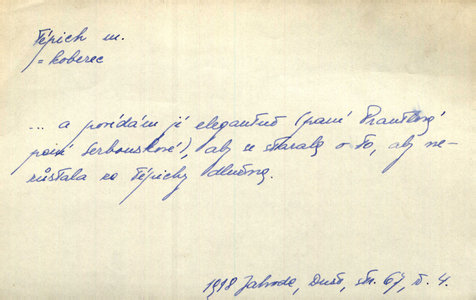 Tépich m.
= koberec
... a povídám jí elegantně (paní Prautlová
paní Serbouskové), aby se starala o to, aby ne-
zůstala za tépichy dlužna.
1918 Jahode, Duše, str. 67, ř. 4.